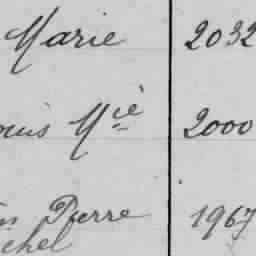 Marie 2032
ouis Mie 2000
Pierre 1967
chel